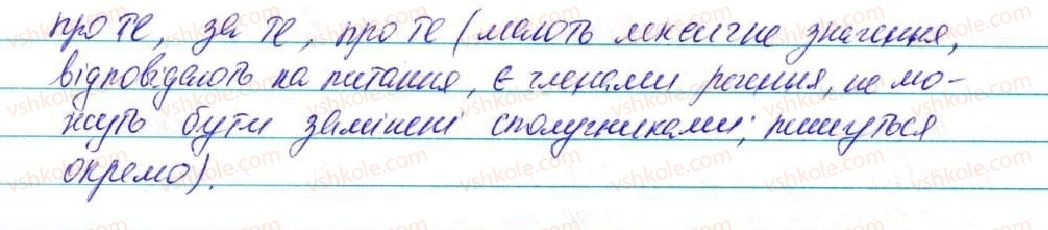 про те, за те, про те (мають лексичне значення,
відповідають на питання, є членами речення, не мо-
жуть бути замінені сполучниками; пишуться
окремо).